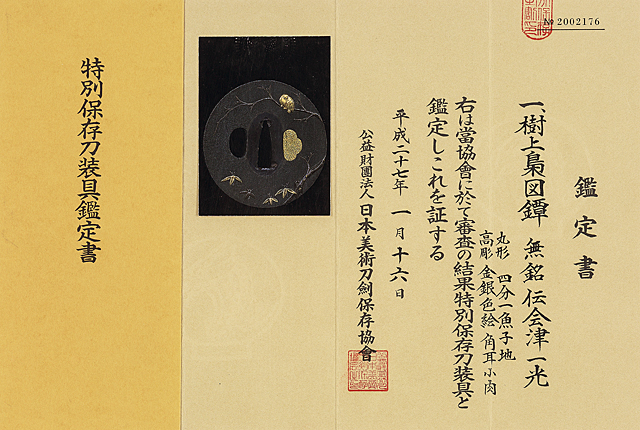 № 2002176
鑑定書
一、樹上梟図鐔 無銘 伝会津一光
丸形 四分一魚子地
高彫 金銀色絵 角耳小肉
右は當協會に於て審査の結果特別保存刀装具と
鑑定しこれを証する
平成二十七年 一月十六日
公益財團法人 日本美術刀劍保存協會
特別保存刀装具鑑定書